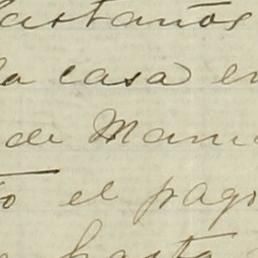 Castaños
la casa en
de Manu
to el pago
hasta